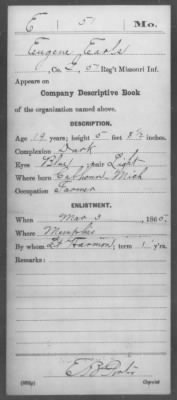 E 51 Mo.
Eugene Earls
, Co. , 51 Reg't Missouri Inf.
Appears on
Company Descriptive Book
of the organization named above.
DESCRIPTION.
Age 19 years; height 5 feet 8½ inches.
Complexion Dark
Eyes Blue; hair Light
Where born Calhoun Mich
Occupation Farmer
ENLISTMENT.
When Mar 3, 1865.
Where Memphis
By whom Lt ; term 1 y'rs.
Remarks:
Copyist